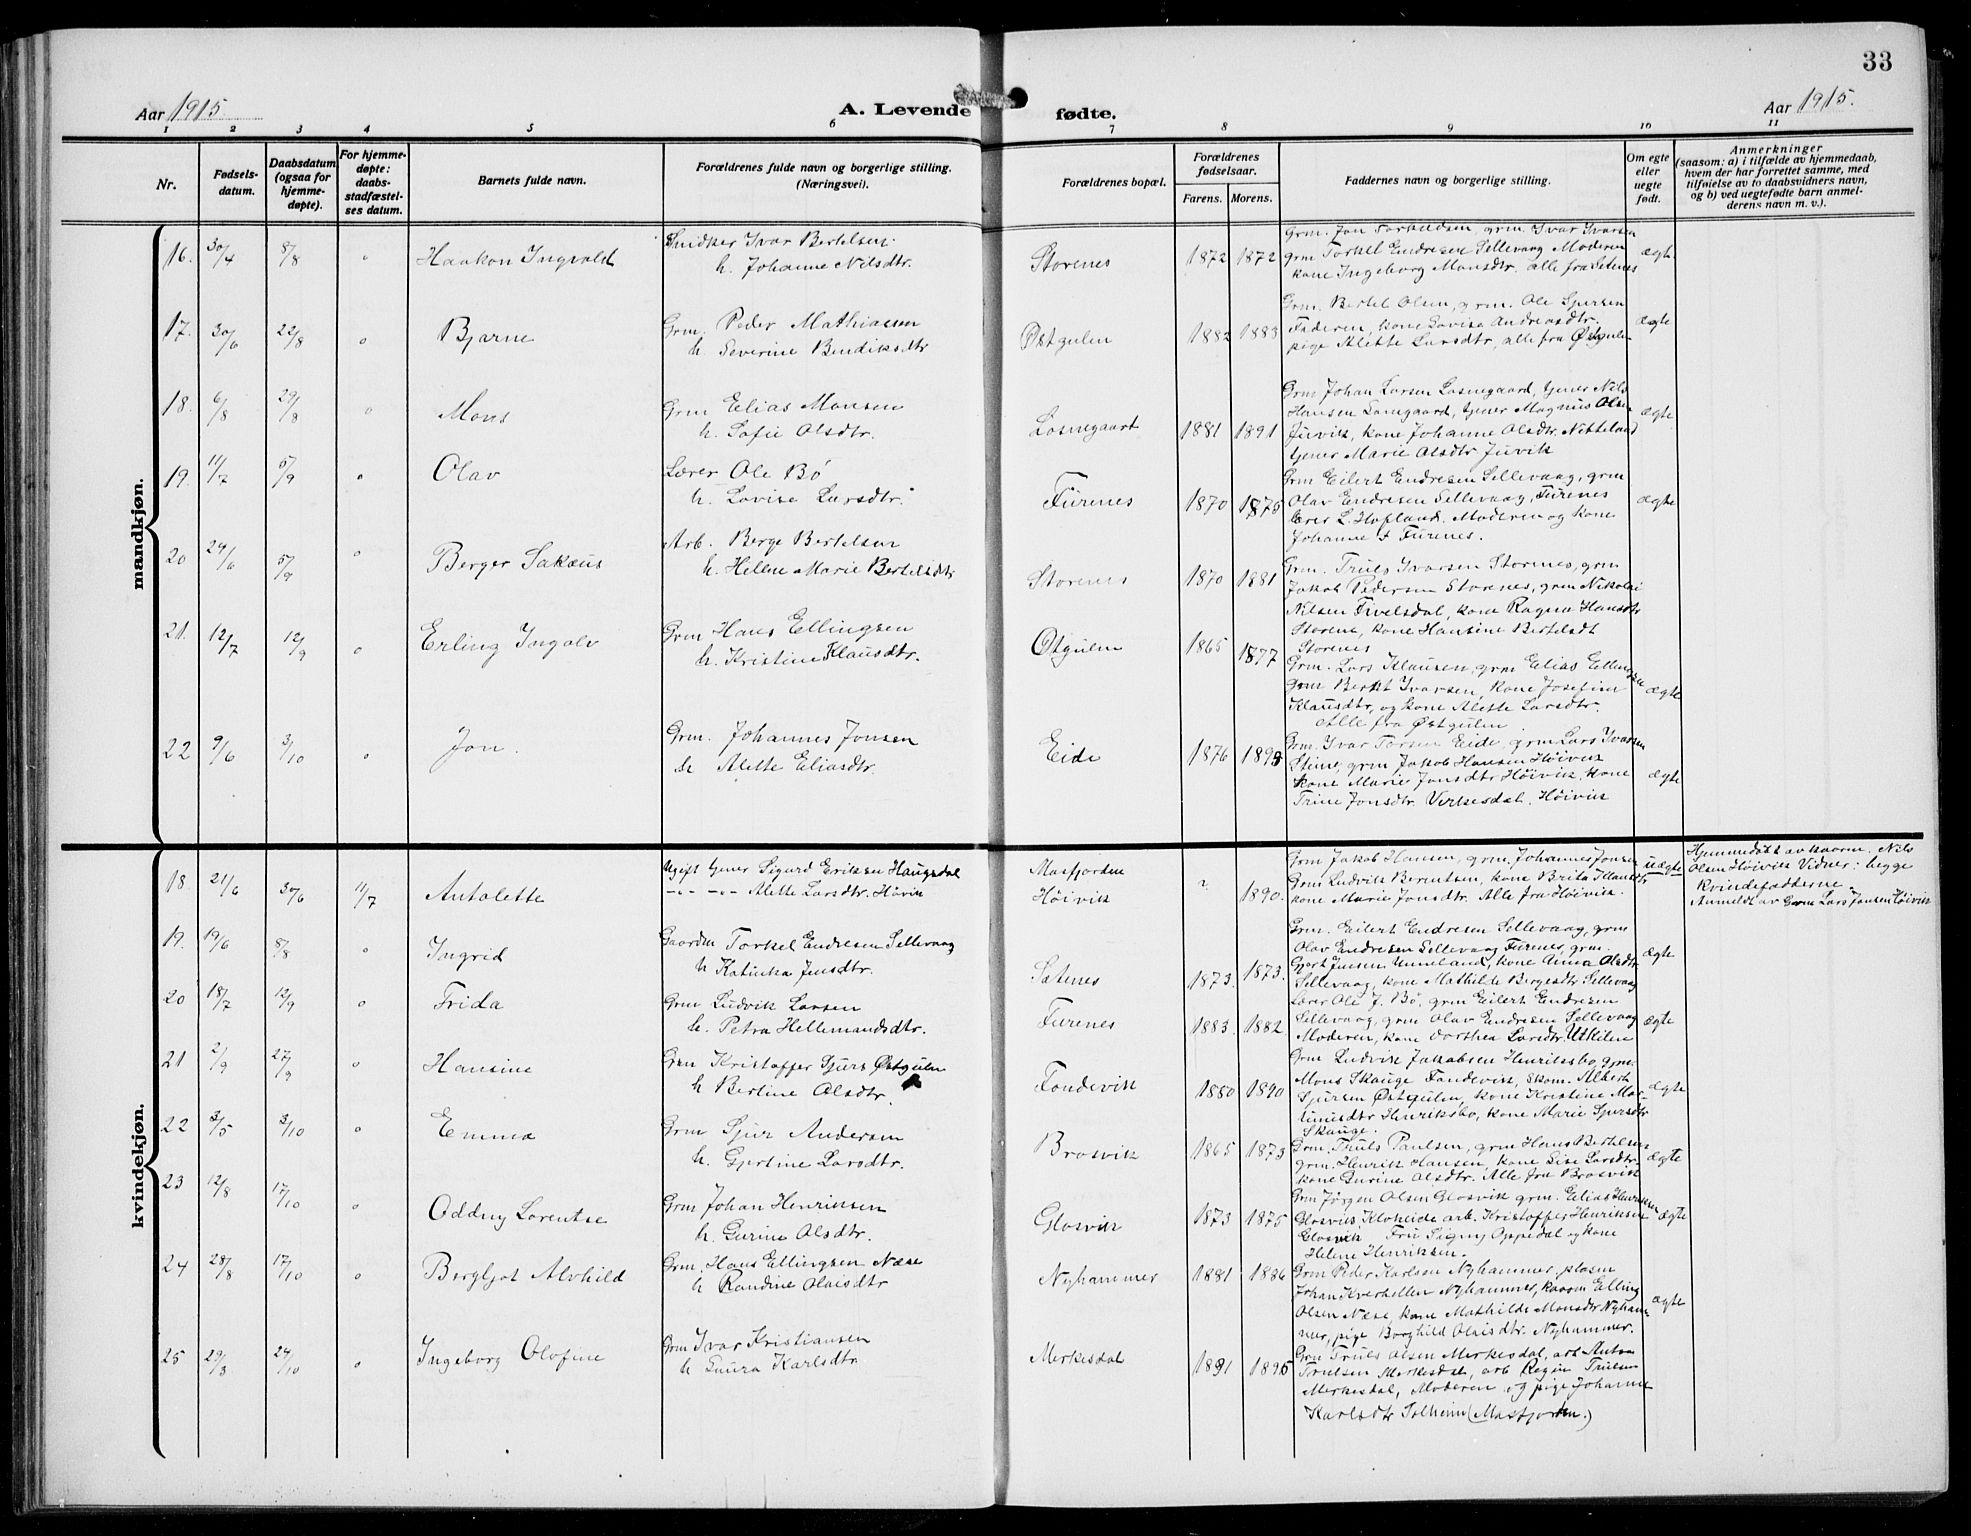 33
Aar 1915.
A. Levende fødte.
Aar 1915.
1 2 3 4 5 6 7 8 9 10 11
Nr.
Fødselsdatum.
Daabsdatum (ogsaa for hjemmedøpte).
For hjemmedøpte: daabsstadfæstelses datum.
Barnets fulde navn.
Forældrenes fulde navn og borgerlige stilling. (Næringsvei).
Forældrenes bopæl.
Forældrenes fødselsaar.
Farens. Morens.
Faddernes navn og borgerlige stilling.
Om egte eller uegte født.
Anmerkninger
(saasom: a) i tilfælde av hjemmedaab,
hvem der har forrettet samme, med
tilføielse av to daabsvidners navn,
og b) ved uegtefødte barn anmelderens navn m. v.).
mandkjøn.
16. 30/4 8/8 " Haakon Ingvald
Snidker Ivar Bertelsen
h. Johanne Nilsdtr.
Storenes 1872 1872
Grm. Jon Torkildsen, grm. Ivar Ivarsen
grm Torkel Endresen Sellevaag Moderen
kone Ingeborg Monsdtr. alle fra Setenes
ægte
17. 30/6 22/8 " Bjarne
Grm. Peder Mathiassen
h. Severine Bendiksdtr
Østgulen 1882 1883
Grm. Bertel Olsen, grm. Ole Sjursen
Faderen, kone Lovise Andreasdtr.
pige Alette Larsdtr, alle fra Østgulen
ægte
18. 6/8 29/8 " Mons
Grm Elias Monsen
h. Sofie Olsdtr.
Losnegaart 1881 1891
Grm Johan Larsen Losnegaard, tjener Nils
Hansen Losnegaard, tjener Magnus Olsen
Juvik, kone Johanne Olsdtr. Nitteland
tjener Marie Olsdtr Juvik
ægte
19. 11/7 5/9 " Olav
Lærer Ole Bö
h. Lovise Larsdtr.
Furenes 1870 1875
Grm Eilert Endresen Sellevaag, grm
Olav Endresen Sellevaag, Furenes
lærer L. Hofland. Moderen og kone
Johanne Furenes.
ægte
20 24/6 5/9 " Berger Sakæus
Arb. Berge Bertelsen
h. Hellene Marie Bertelsdtr
Storenes 1870 1881
Grm. Truls Ivarsen Storenes, grm
Jakob Pedersen Storenes, grm Nikolai
Nilsen Tvelsdal, kone Ragna Hansdtr
Storene, kone Hansine Bertelsdt
Storenes
21. 12/7 12/9 " Erling Ingolv
Grm Hans Ellingsen
h. Kristine Klausdtr.
Østgulen 1865 1877
Grm. Lars Klausen, grm Elias Ellingsen
grm Berent Ivarsen, kone Josefine
Klausdtr, og kone Alette Larsdtr.
Alle fra Østgulen
ægte
22 9/6 3/10 " Jon.
Grm. Johannes Jonsen
h Alette Eliasdtr.
Eide 1876 1893
Grm. Ivar Torsen Eide, grm Lars Ivarsen
Stime, grm Jakob Hansen Höivik
kone Marie Jonsdtr Höivik, kone
Trine Jonsdtr. Verkesdal. Höivik
ægte
kvindekjøn.
18 21/6 30/6 11/7 Antolette
Ugift tjener Sigurd Eriksen Haugsdal
-"- -"- Alette Larsdtr. Hövik
Masfjorden
Höivik ? 1890.
Grm Jakob Hansen, grm. Johannes Jonsen
Grm Ludvik Berentsen, kone Brita Klausdtr
kone Marie Jonsdtr. Alle fra Höivik.
uægte
Hjemmedøbt av kaarm. Nils
Olsen Höivik Vidner: begge
kvindefadderne.
Anmeldt av Grm Lars Jonsen Höivik
19. 19/6 8/8 " Ingrid
Gaardm Torkel Endresen Sellevaag
h Katinka Jensdtr.
Setenes 1873. 1873.
Grm. Eilert Endresen Sellevaag, grm
Olav Endresen Sellevaag Furenes, grm.
Gjert Jensen Unneland, kone Anna Olsdtr.
Sellevaag, kone Mathilde Bergesdtr Sellevaag
ægte
20 18/7 12/9 " Frida
Grm Ludvik Larsen
h. Petra Hellemandsdtr.
Furenes 1883. 1882
Lærer Ole J. Bö, grm Eilert Endresen
Sellevaag, grm Olav Endresen Sellevaag
Moderen, kone Dorthea Larsdtr. Utkilen
ægte
21 2/9 27/9 " Hansine
Grm Kristoffer Sjurs Østgulen
h Bertine Olsdtr.
Fondevik 1880 1890
Grm Ludvik Jakobsen Henriksbø grm.
Mons Skauge Fondevik, skom. Albert
Sjursen Østgulen, kone Kristine Martinusdtr Henriksbø, kone Marie Sjursdtr
Skauge.
ægte
22 3/5 3/10 " Emma
Grm Sjur Andersen
h. Gjertine Larsdtr.
Brosvik 1865 1873
Grm. Truls Paulsen, grm Hans Bertelsen
grm. Henrik Hansen, kone Lise Larsdtr.
kone Gurine Olsdtr. Alle fra Brosvik
ægte
23 12/8 17/10 " Oddny Lorentse
Grm Johan Henriksen
h. Gurine Olsdtr.
Glosvik 1873 1875
Grm Jörgen Olsen Glosvik grm. Elias Henriksen
Glosvik, Kloheide arb. Kristoffer Henriksen
Glosvik Fru Signy Oppedal og kone
Helene Henriksen.
ægte
24 28/8 17/10 " Bergljot Alvhild
Grm. Hans Ellingsen Næse
h Randine Olaisdtr
Nyhammer 1881 1886
Grm Peder Karlsen Nyhammer, plasm
Johan Kverhellen Nyhammer, kaarm Elling
Olsen Næse, kone Mathilde Monsdtr Nyhammer, pige Borghild Olaisdtr. Nyhammer.
ægte
25 29/8 24/10 " Ingeborg Olofine
Grm Ivar Kristiansen
h Laura Karlsdtr
Merkesdal 1891 1895
Grm Truls Olsen Merkesdal, arb Anton
Trulsen Merkesdal, arb Regin Trulsen
Merkesdal, Moderen og pige Johanne
Karlsdtr Solheim (Masfjorden.)